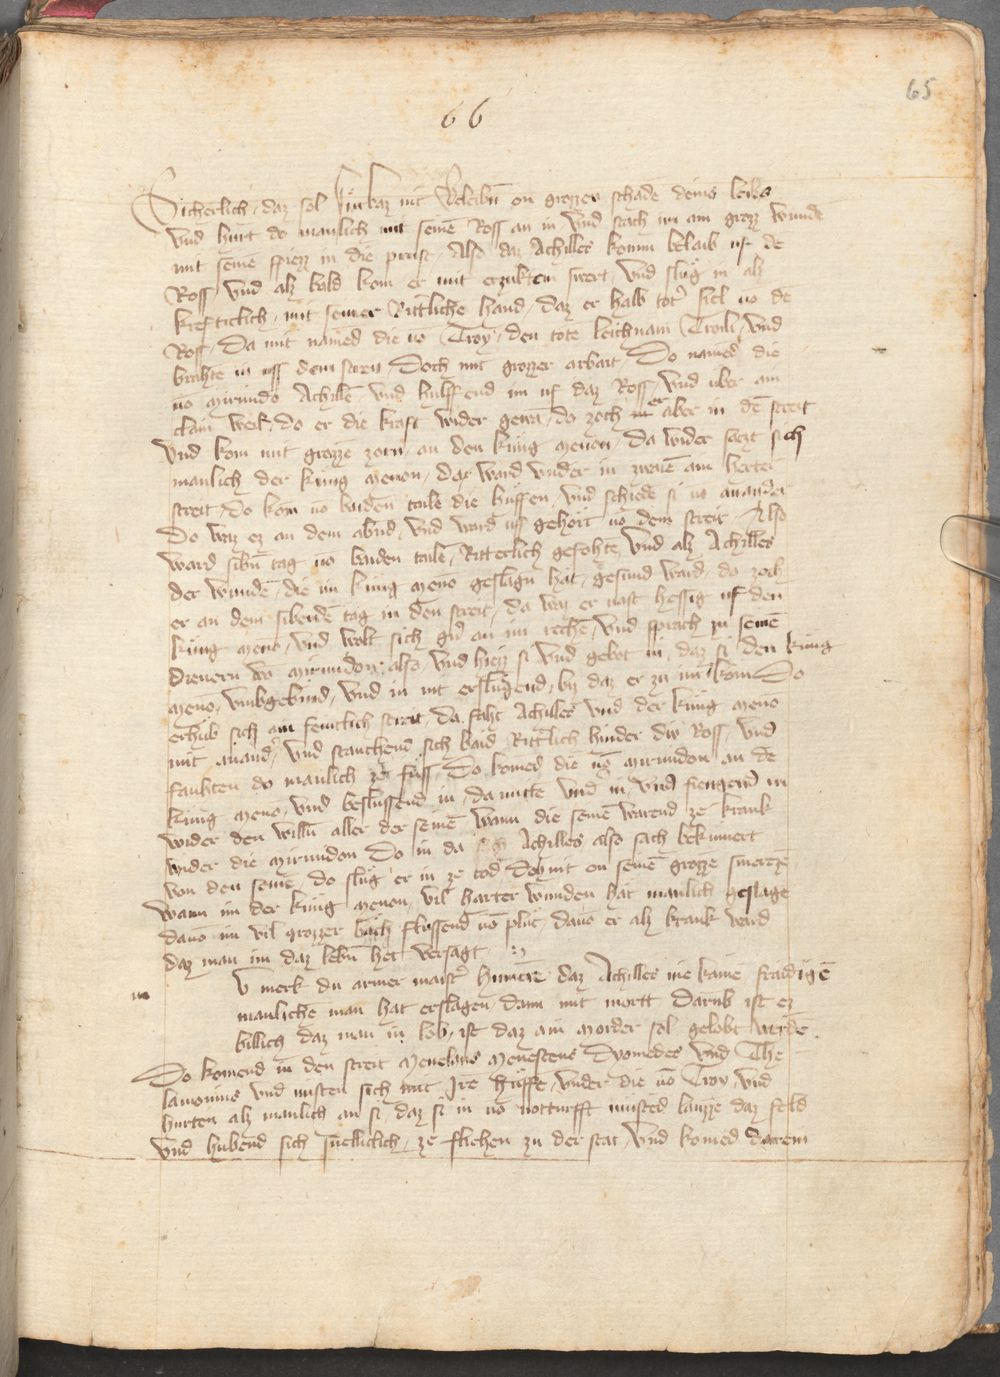 65
66
Sicherlich, daz sol fürbaz nit beleibn̄ on grozzen schade deins leibs
vnd hurt do manlich mit seinē Ross an in vnd stach im ain grozz wunde
mit seinē spiezz in die prust, Also daz Achilles komm belaib uf dē
Ross, vnd alz bald kom er mit erzuktem swert, vnd slůg in alz
kreftiklich, mit seiner Rittliche hand, daz er halb totr̄ viel uō dē
Ross, Da mit namēd die uō Troy, den tote leichnam Troili, vnd
brahte in uss dem streit, Doch mit grozzer arbait, Do namēd die
uō mirmido Achillē, vnd hulffend im uf daz Ross, vnd uber ain
clain weil, do er die kraft wider gewā, do zoch er aber in dē streit
vnd kom mit grozze zorn, an den küng menon, Da wider saczt sich
manlich der küng menon, Da ward vnder in zwaiē ain herter
streit, Do kom uō baidēn taile die huffen, vnd schiede si uō anander
Do waz ez an dem abnd, vnd ward uf gehört uō dem streit, Also
ward sibn̄ tag uō baiden tailē, Ritterlich gefohtē, vnd alz Achilles
der wundē, die im küng meno geslagn̄ hat, gesund ward, do zoch
er an dem sibendē tag in den streit, da waz er vast hessig uf den
küng menō, vnd wolt sich gn̄ an im rechē, vnd sprach zu seinē
dienern uō mirmidon, also, vnd hiezz si vnd gebot in, daz si den küng
menō, vmbgebind, vnd in nit erslügend, bis daz er zu im köm Do
erhub sich ain feintlich streit, da faht Achilles vnd der küng menō
mit anandr̄, vnd stauchend sich baid Rittlich hinder diu Ross, vnd
fauhten do manlich ze fůss, Do komēd die uō mirmidon an dē
küng menō, vnd beslussend in, da mitte vnd in, vnd fiengend in
wider den willn̄ aller der seinē wann die seinē warend ze krank
wider die mirmidon Do in da Achilles also sach bekumert
von den seinē, do slůg er in ze tod, Doh nit on seinē grozze smerczē
wann im der küng menon, vil harter wunden hat manlich geslage
dauō im vil grozzer bäch flussend uō plůt, dauō er alz krank ward
daz man im daz lebn̄ het versagt
V merk du armer maistr̄ Humerē daz Achilles nie kaine fraidigē
manliche man hat erslagen, dann mit mortt Darūb ist ez
billich daz man in lob, ist daz ain morder sol gelobt werdē
Do komend in den streit Menelaus Menesteus Dyomedes vnd The
lamonius vnd misten sich mit Ire Huffe, vnder die uō Troy, vnd
hurten alz manlich an si, daz si in uō notturfft müsted lauzze daz feld
vnd hubend sich snelliclich, ze fliehen zu der stat, vnd komēd darein